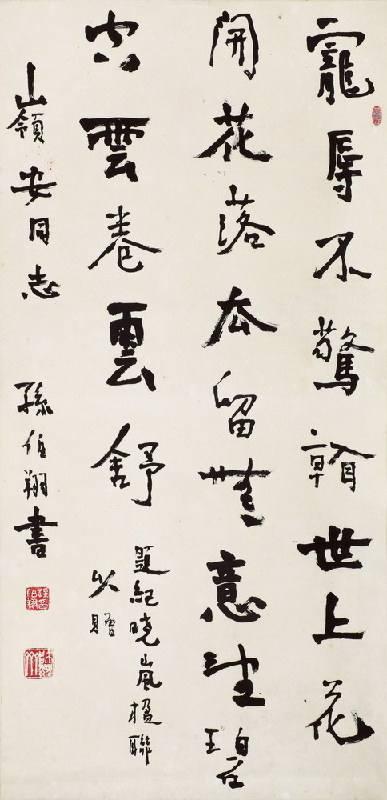 寵辱不驚世上花
開花落去留無意望碧
空雲卷雲舒
題紀晓嵐楹聯
以贈
山嶺安同志
孫伯翔書